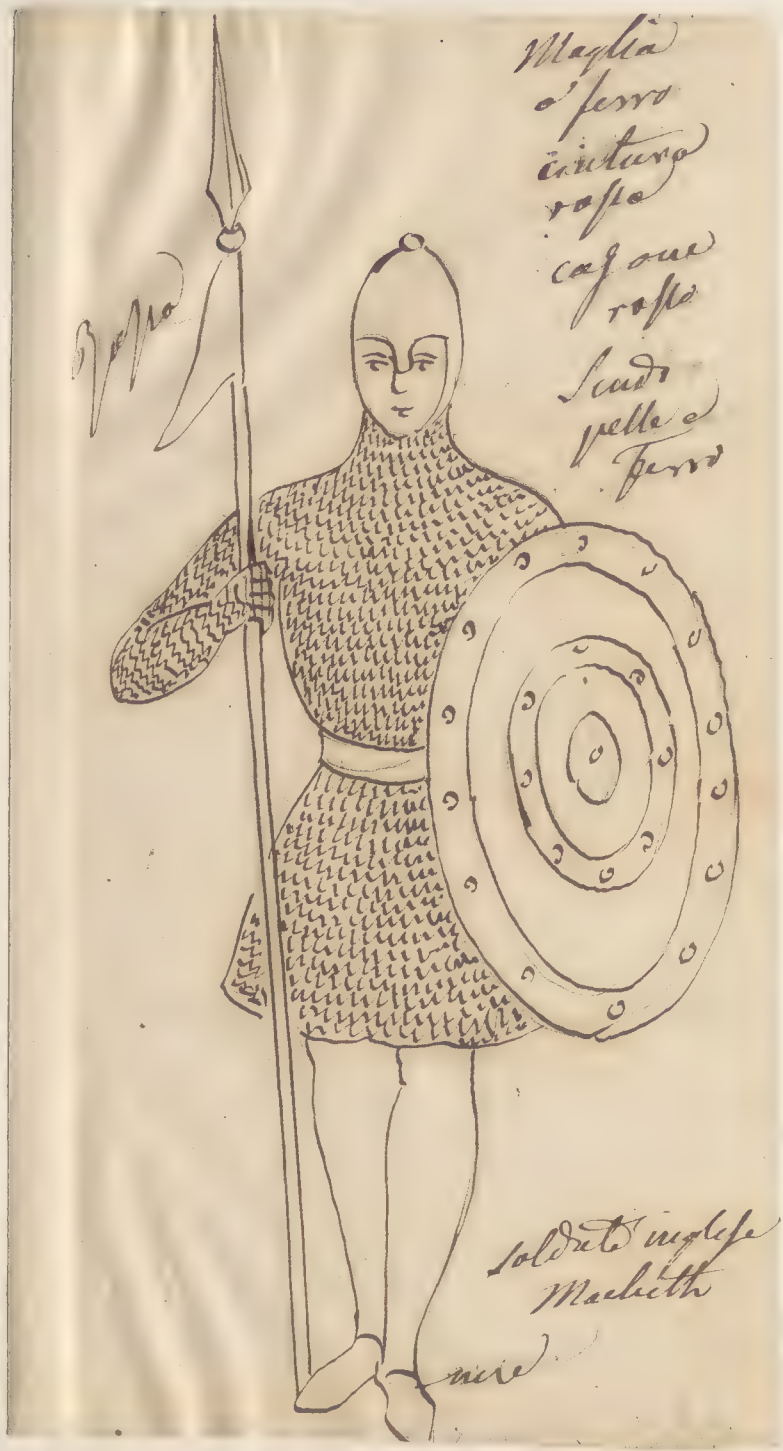 Maglia
d' ferro
cintura
rossa
calzone
rosso
Rosso
Scudo
pelle e
ferro
soldato inglese
Macbeth
nere